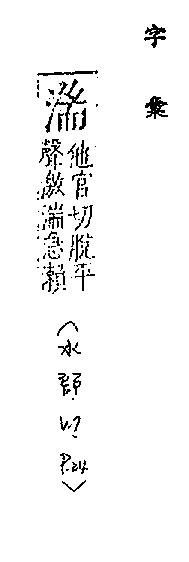 字彙
他官切脫平
聲激湍急瀨
〈水部. P.24〉